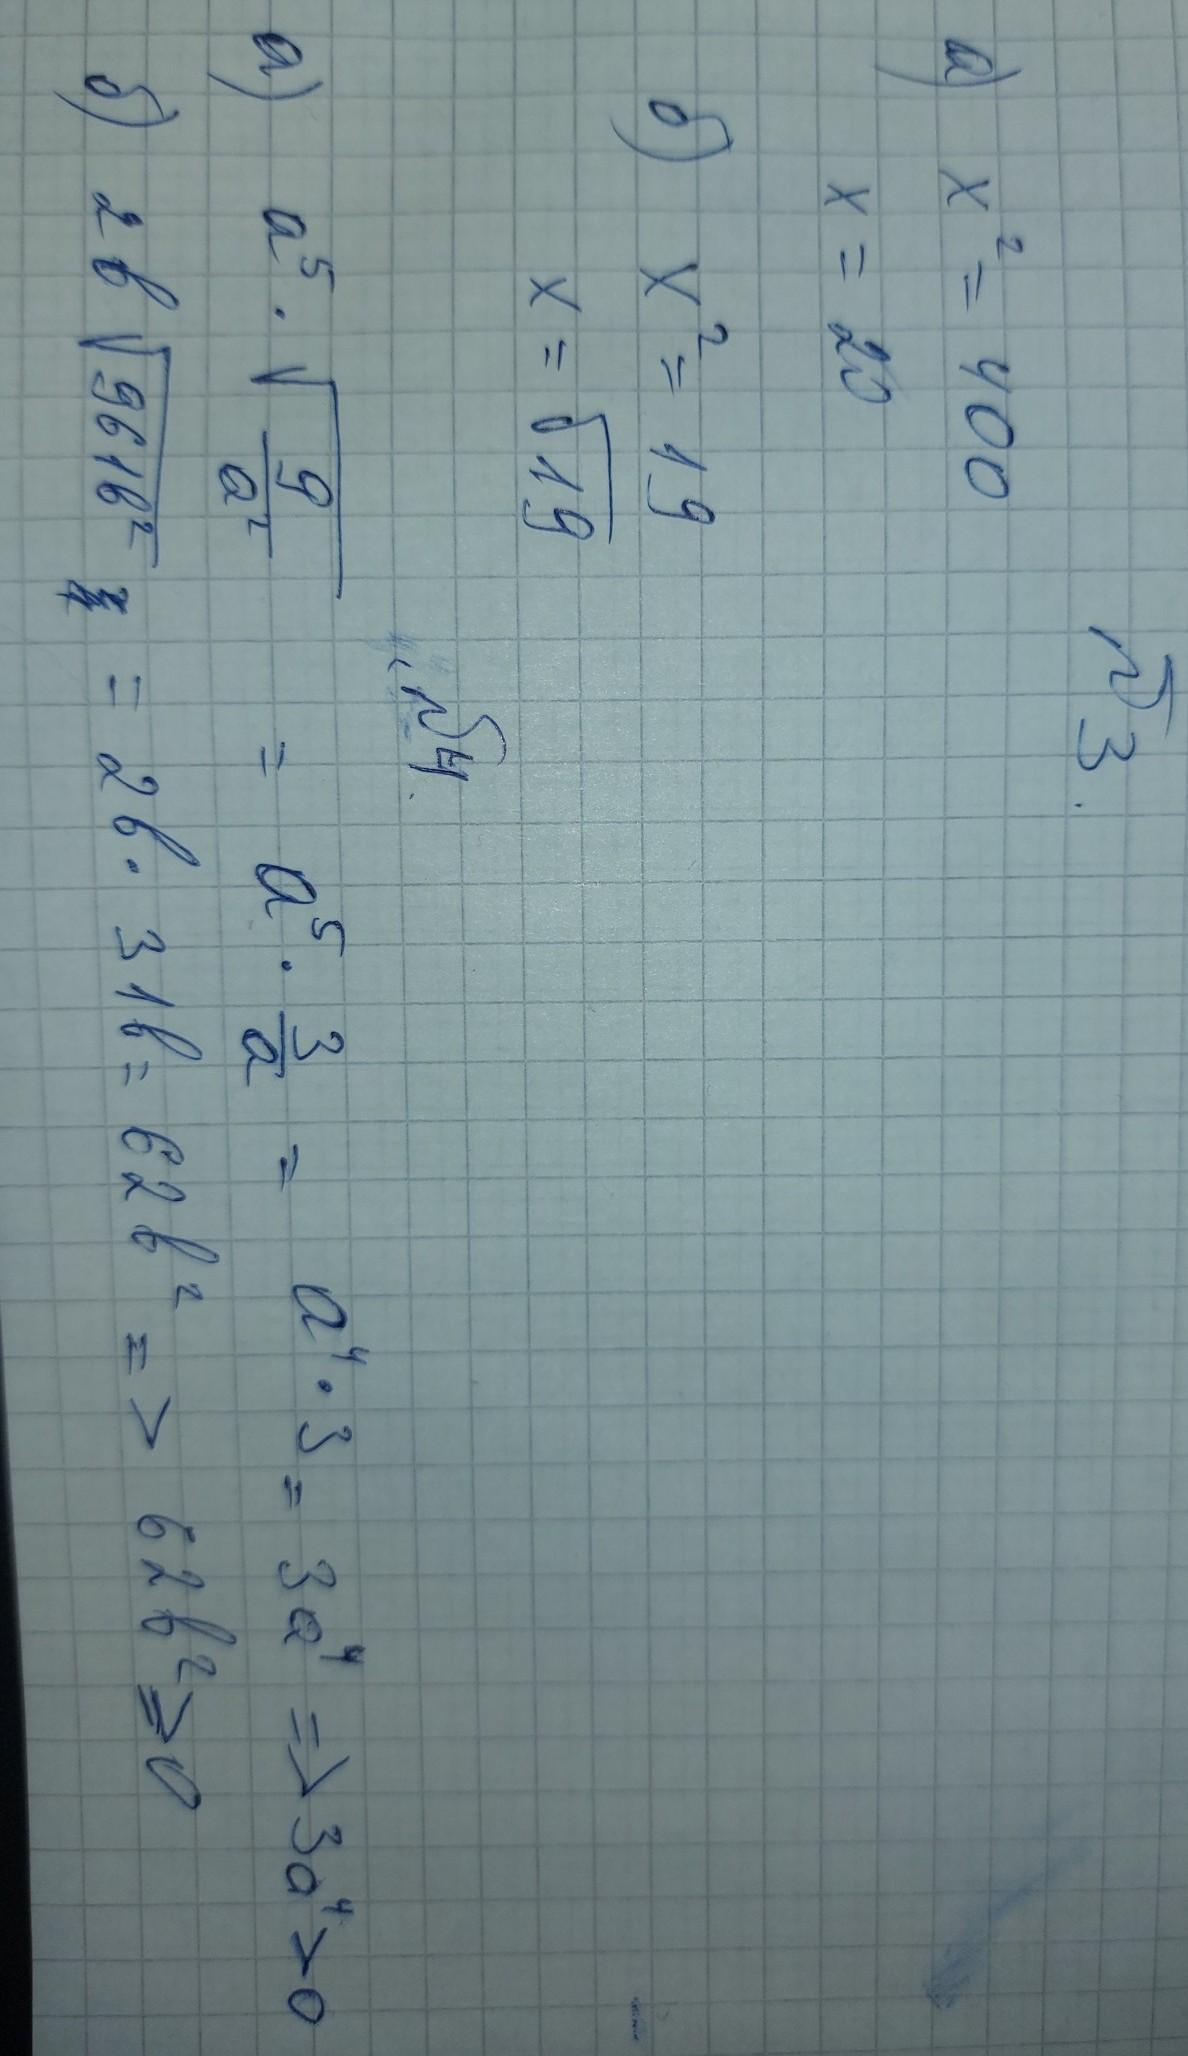 №3.
а) x² = 400
x = 20
б) x² = 19
x = √19
№4.
а) a⁵ · √(9/a²) = a⁵ · 3/a = a⁴ · 3 = 3a⁴ => 3a⁴ > 0
б) 2b √(961b²) = 2b · 31b = 62b² => 62b² ≥ 0